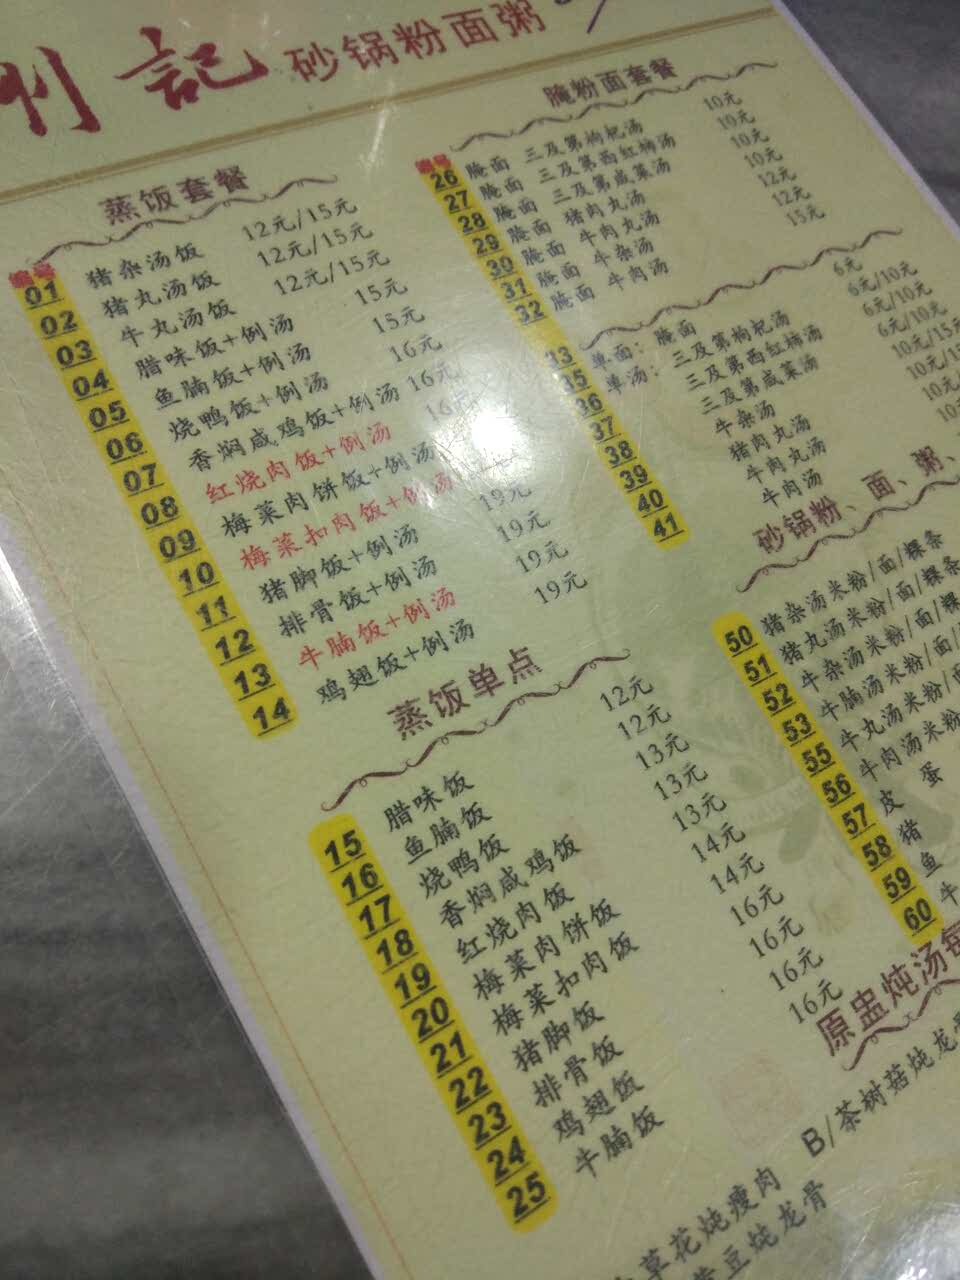 記 砂锅粉面粥
蒸饭套餐
编号
01 猪杂汤饭 12元/15元
02 猪丸汤饭 12元/15元
03 牛丸汤饭 12元/15元
04 腊味饭+例汤 15元
05 鱼腩饭+例汤 15元
06 烧鸭饭+例汤 16元
07 香焖咸鸡饭+例汤 16元
08 红烧肉饭+例汤 16元
09 梅菜肉饼饭+例汤
10 梅菜扣肉饭+例汤
11 猪脚饭+例汤 19元
12 排骨饭+例汤 19元
13 牛腩饭+例汤 19元
14 鸡翅饭+例汤 19元
蒸饭单点
15 腊味饭 12元
16 鱼腩饭 12元
17 烧鸭饭 13元
18 香焖咸鸡饭 13元
19 红烧肉饭 13元
20 梅菜肉饼饭 14元
21 梅菜扣肉饭 14元
22 猪脚饭 16元
23 排骨饭 16元
24 鸡翅饭 16元
25 牛腩饭 16元
腌粉面套餐
编号
26 腌面 三及第枸杞汤 10元
27 腌面 三及第西红柿汤 10元
28 腌面 三及第咸菜汤 10元
29 腌面 猪肉丸汤 10元
30 腌面 牛肉丸汤 12元
31 腌面 牛杂汤 12元
32 腌面 牛肉汤 15元
33 单面：腌面 6元
35 单汤：三及第枸杞汤 6元/10元
36 三及第西红柿汤 6元/10元
37 三及第咸菜汤 6元/10元
38 牛杂汤 10元/15元
39 猪肉丸汤 10元/
40 牛肉丸汤 10元/
41 牛肉汤 10元
砂锅粉、面、粥、
50 猪杂汤米粉/面/粿条
51 猪丸汤米粉/面/粿条
52 牛杂汤米粉/面/粿
53 牛腩汤米粉/面/
55 牛丸汤米粉/面
56 牛肉汤米粉
57 皮蛋
58 猪
59 鱼
60 牛
原盅炖汤每
B/茶树菇炖龙骨
草花炖瘦肉
豆炖龙骨